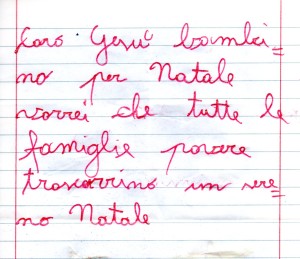 Caro Gesù bambi=
no per Natale
vorrei che tutte le
famiglie povere
trascorrino un sere=
no Natale